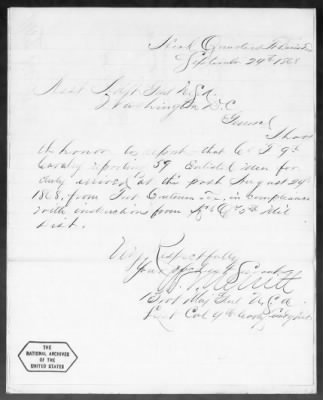 Head Quarters Ft Davis
September 24th 1868
Adjt Genl U.S.A.
Washington D.C.
General
I have
the honor to report that Co "I" 9th
Cavalry reporting 59 Enlisted Men for
duty arrived at this post August 24th
1868, from Fort Quitman Tex. in compliance
with instructions from Hd Qrs 5th Mil
Dist.
Very Respectfully
Your
Merritt
Bvt Maj Genl U.S.A.
Lieut Col 9th Cavalry
THE
NATIONAL ARCHIVES
OF THE
UNITED STATES